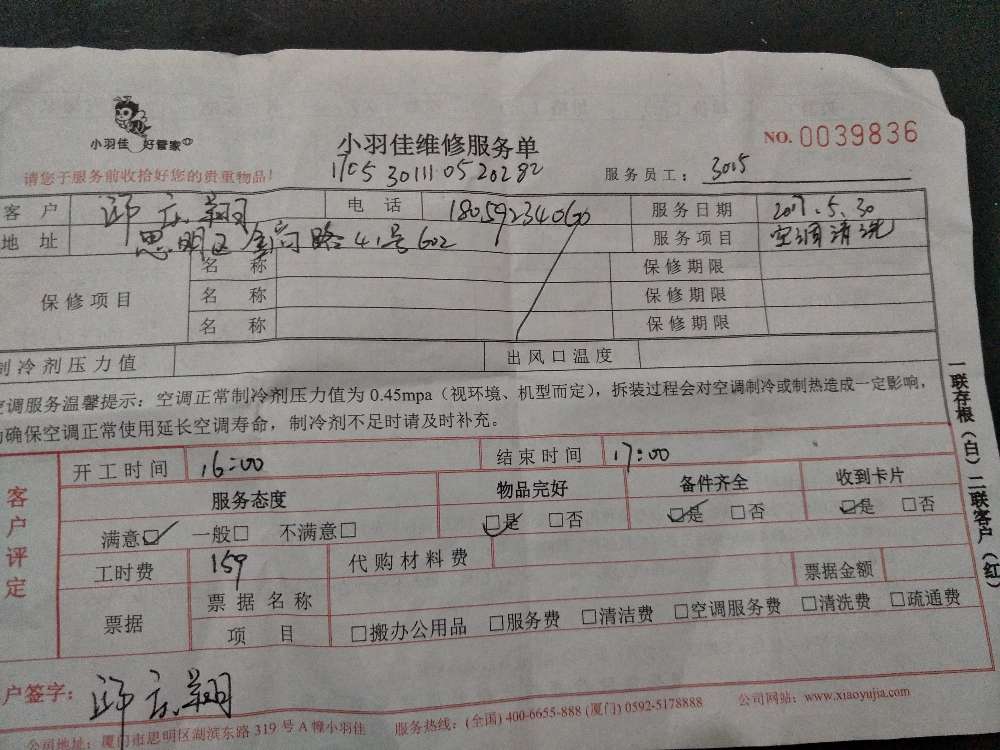 小羽佳 好管家
小羽佳维修服务单
NO. 0039836
请您于服务前收拾好您的贵重物品!
1705 30111 05 20282
服务员工: 3015
客 户
电 话 18059234060 服务日期 2017.5.30
地 址 思明区金尚路41号602 服务项目 空调清洗
保修项目
名 称 保修期限
名 称 保修期限
名 称 保修期限
制冷剂压力值 出风口温度
空调服务温馨提示: 空调正常制冷剂压力值为 0.45mpa (视环境、机型而定), 拆装过程会对空调制冷或制热造成一定影响,
为确保空调正常使用延长空调寿命, 制冷剂不足时请及时补充。
客户评定
开工时间 16:00 结束时间 17:00
服务态度 物品完好 备件齐全 收到卡片
满意□ 一般□ 不满意□ □是 □否 □是 □否 □是 □否
工时费 159 代购材料费
票据 票据名称 票据金额
项 目 □搬办公用品 □服务费 □清洁费 □空调服务费 □清洗费 □疏通费
户签字:
公司地址: 厦门市思明区湖滨东路 319 号 A 幢小羽佳 服务热线: (全国) 400-6655-888 (厦门) 0592-5178888 公司网站: www.xiaoyujia.com
一联存根(白) 二联客户(红)